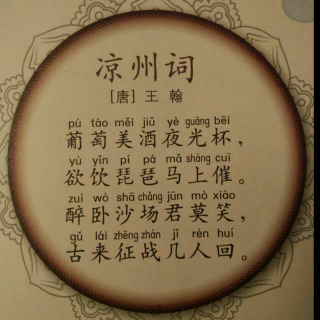 凉州词
[唐] 王 翰
pú táo měi jiǔ yè guāng bēi
葡萄美酒夜光杯，
yù yǐn pí pá mǎ shàng cuī
欲饮琵琶马上催。
zuì wò shā chǎng jūn mò xiào
醉卧沙场君莫笑，
gǔ lái zhēng zhàn jǐ rén huí
古来征战几人回。